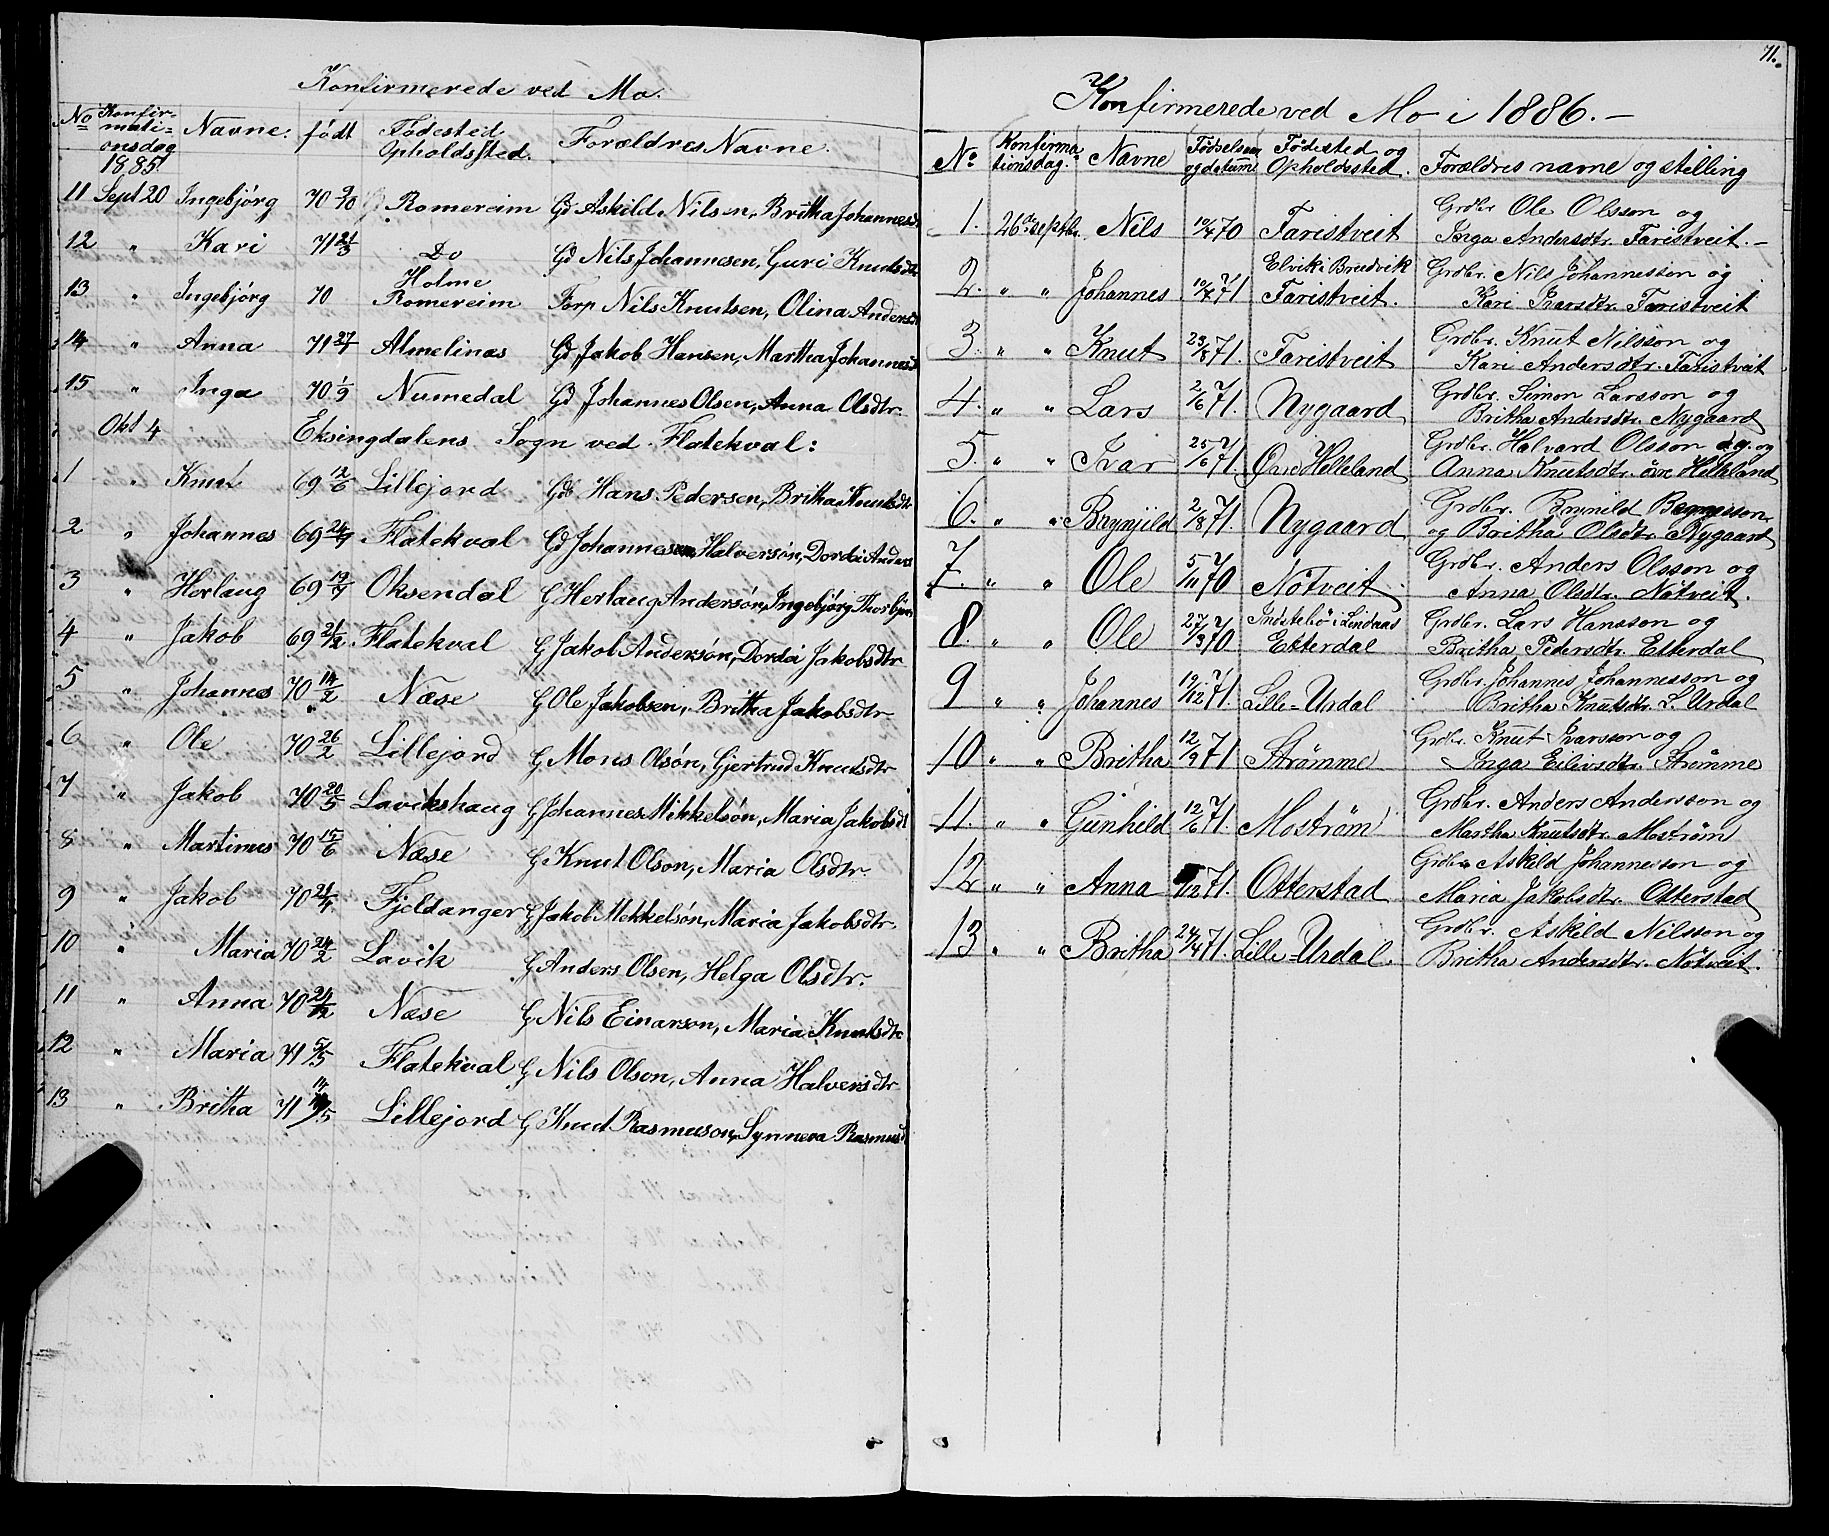 Konfirmerede ved Mo.
No Konfirmationsdag 1885. Navne. født Fødested Opholdssted. Forældres Navne.
11 Sept 20 Ingebjörg 70 Romereim Gd Askild Nilsen, Britha Johannesd
12 " Kari 71 21/3 Do Gd Nils Johannesen, Guri Knutsdtr
13 " Ingebjörg 70 Holme Romereim Torp Nils Knutsen, Olina Andersd
14 " Anna 71 27/7 Almelinas Gd Jakob Hansen, Martha Johannesd
15 " Inga 70 1/9 Numedal Gd Johannes Olsen, Anna Olsdtr.
Okt 4 Eksingdalens Sogn ved Flatekval:
1 " Knut 69 12/6 Lillejord Gdb Hans Pedersen, Britha Knutsdtr
2 " Johannes 69 24/7 Flatekval Gd Johannes Halversön, Dordei Anders
3 " Herlaug 69 19/7 Oksendal G Herlaug Andersön, Ingebjörg Thorbjörn
4 " Jakob 69 21/12 Flatekval G Jakob Andersön, Dordei Jakobsdtr
5 " Johannes 70 14/2 Næse G Ole Jakobsen, Britha Jakobsdtr
6 " Ole 70 26/2 Lillejord G Mons Olsön, Gjertrud Knutsdtr
7 " Jakob 70 20/5 Lavikshaug G Johannes Mikkelsön, Maria Jakobsdt
8 " Martinus 70 15/6 Næse G Knut Olson, Maria Olsdtr.
9 " Jakob 70 Fjeldanger G Jakob Mekkelsön, Maria Jakobsdtr.
10 " Maria 70 24/2 Lavik G Anders Olsen, Helga Olsdtr.
11 " Anna 70 24/12 Næse G Nils Einarson, Maria Knutsdtr
12 " Maria 71 5/5 Flatekval G Nils Olson, Anna Halversdtr
13 " Britha 71 Lillejord G Knud Rasmuson, Synneva Rasmusd
71.
Konfirmerede ved Mo i 1886. -
No. Konfirmationsdag. Navne Fødselsaar og datum Fødested og Opholdssted. Forældres navne og stilling
1. 26de septbr. Nils 10/4 70 Faristveit Grdbr Ole Olsson og
Inga Andersdtr. Faristveit. -
2. " " Johannes 10/4 71 Elvik i Bredvik Faristveit. Grdbr. Nils Johannesson og
Kari Ivarsdtr. Faristveit
3. " " Knut 23/8 71. Faristveit Grdbr. Knut Nilsson og
Kari Andersdtr. Faristveit
4. " " Lars 2/6 71. Nygaard Grdbr. Simon Larsson og
Britha Andersdtr. Nygaard
5. " " Ivar 25/6 71. Övre Helleland Grdbr. Halvard Olsson og
Anna Knutsdtr. övre Helleland
6. " " Brynjild 2/8 71. Nygaard Grdbr. Brynild
og Britha Olsdtr. Nygaard
7. " " Ole 5/11 70 Nötveit Grdbr. Anders Olsson og
Anna Olsdtr. Nötveit.
8. " " Ole 27/3 70. Indstebö i Lindaas Etterdal Grdbr. Lars Hansson og
Britha Pedersdtr. Etterdal
9 " " Johannes 19/12 71. Lille-Urdal Grdbr. Johannes Johannesson og
Britha Knutsdtr. L. Urdal
10 " " Britha 12/9 71. Strömme Grdbr. Knut Ivarsson og
Inga Eilivsdtr. Strömme
11. " " Gunhild 12/6 71. Moström Grdbr. Anders Andersson og
Martha Knutsdtr. Moström
12 " " Anna /12 71. Otterstad Grdbr Askild Johannesson og
Maria Jakobsdtr. Otterstad
13 " " Britha 24/4 71. Lille-Urdal. Grdbr. Askild Nilsson og
Britha Andersdtr. Nötveit.